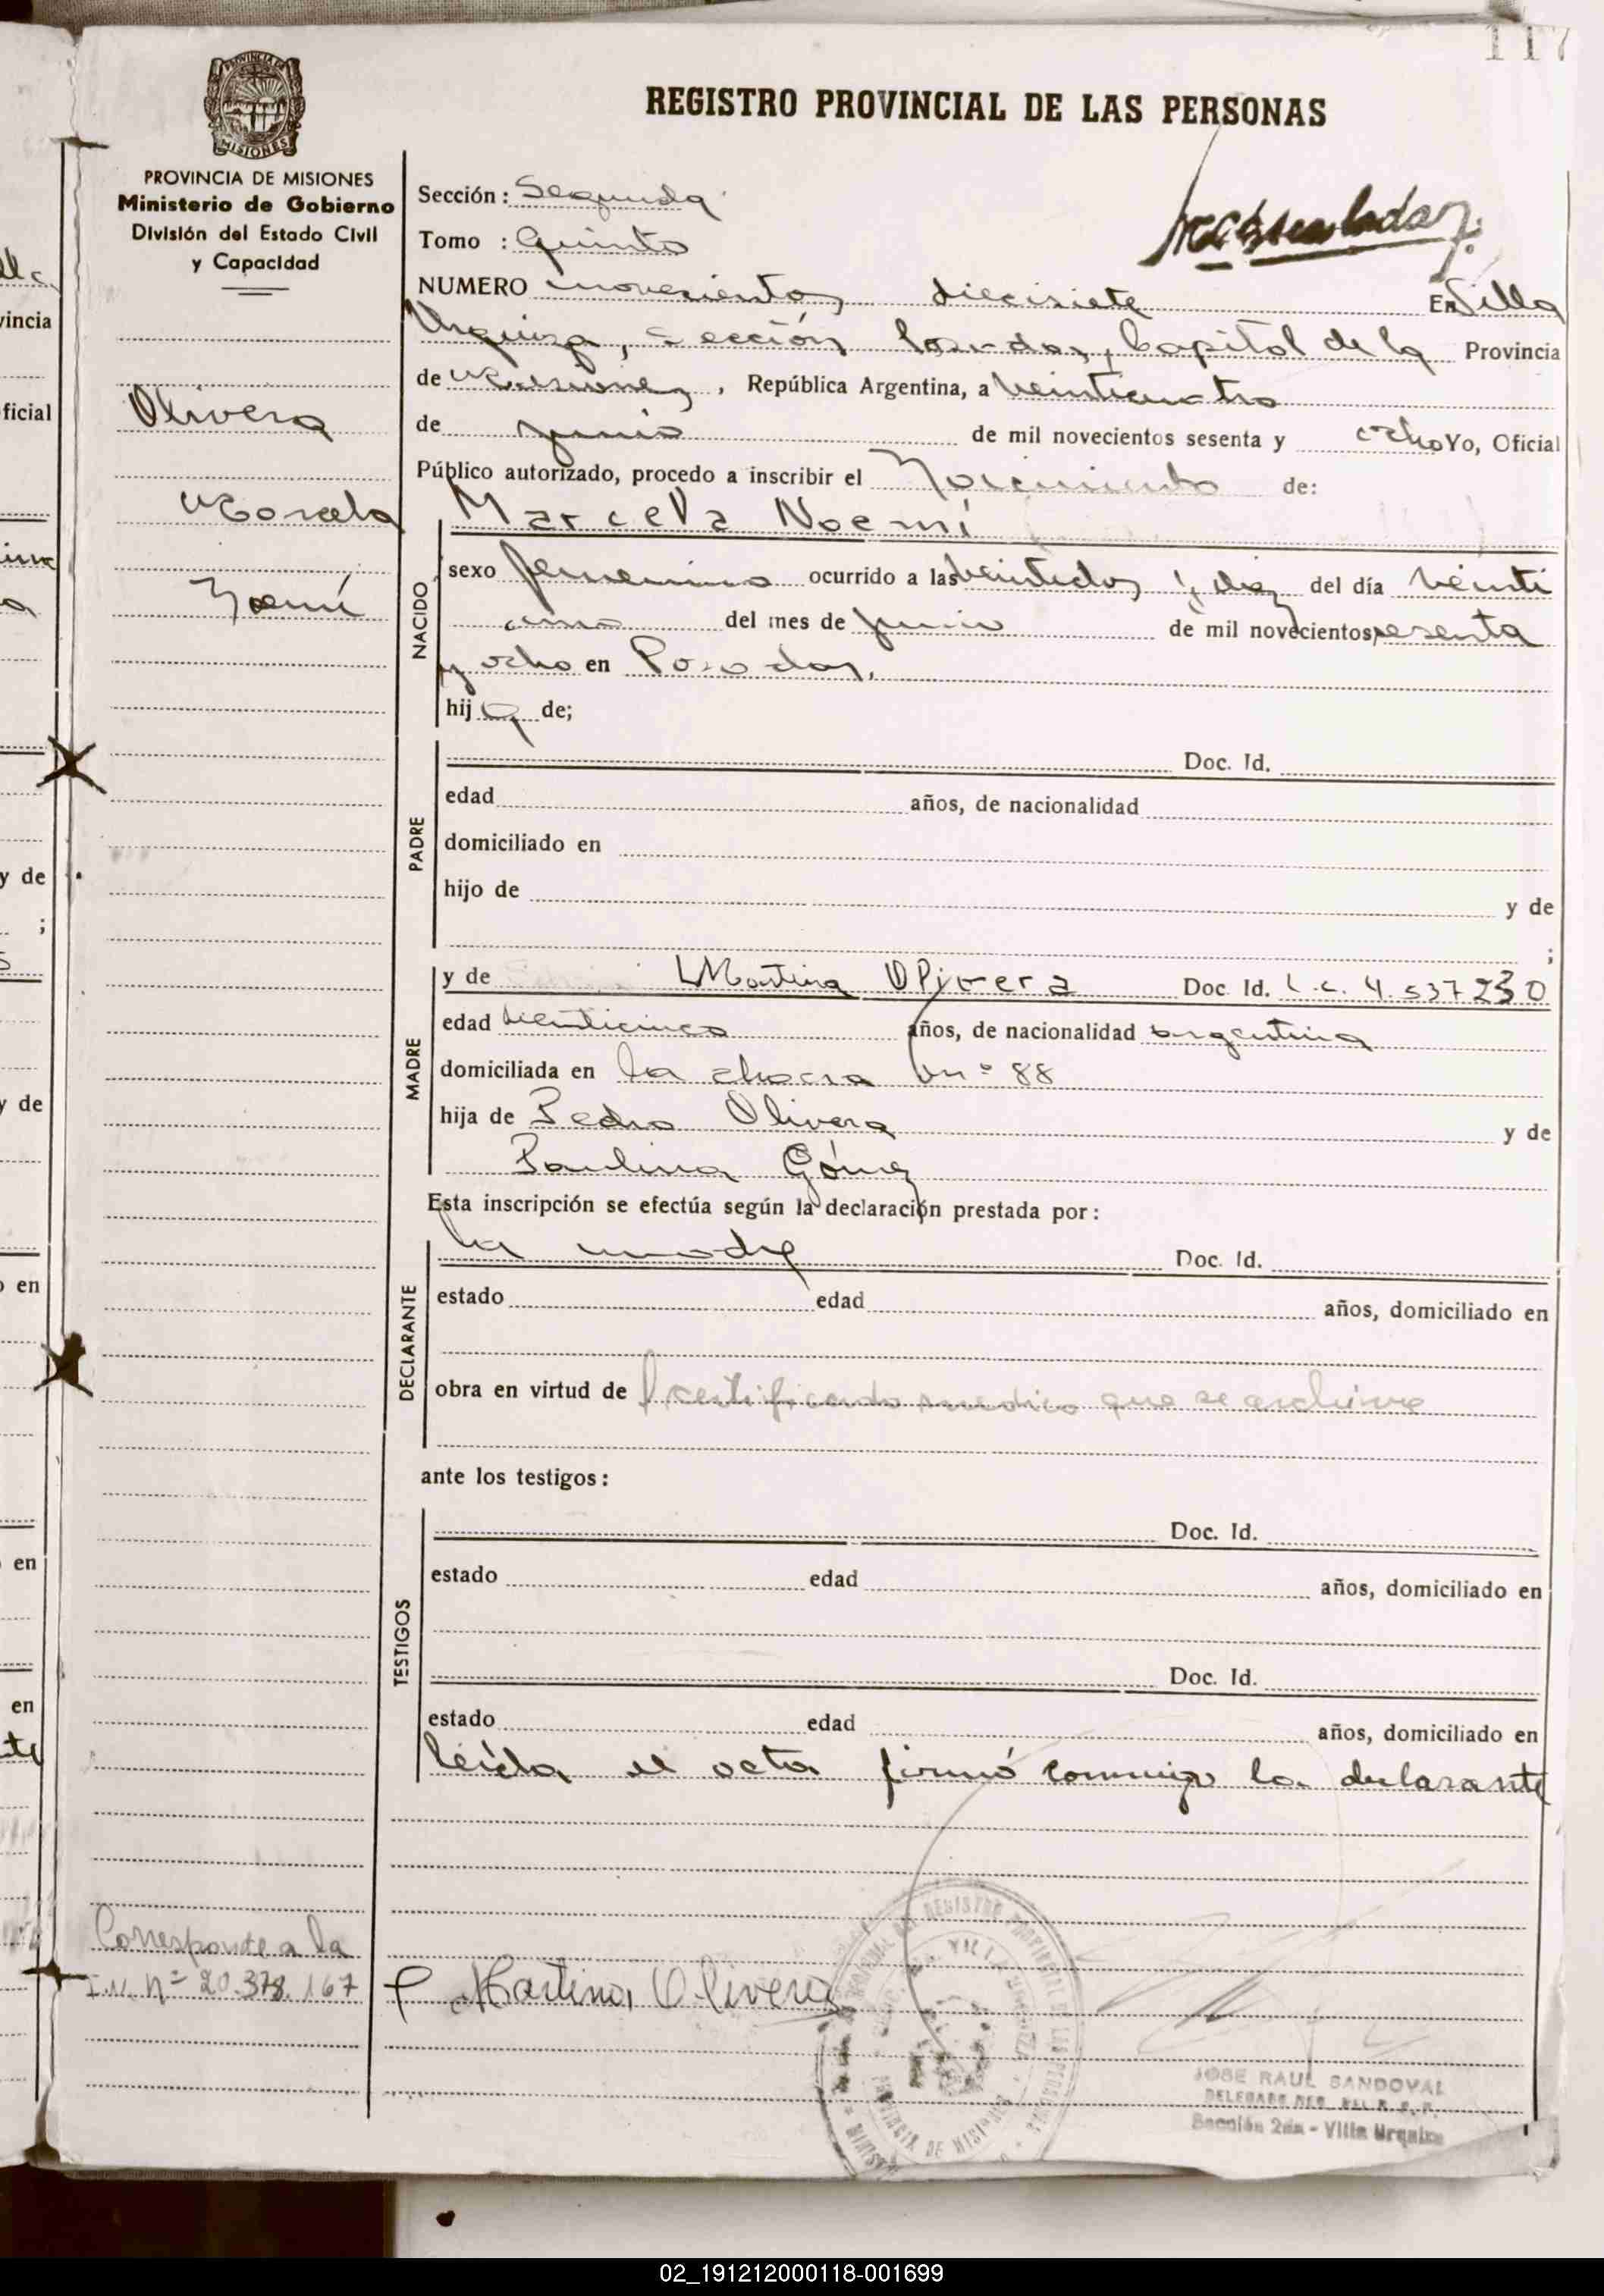 117
PROVINCIA DE
MISIONES
REGISTRO PROVINCIAL DE LAS PERSONAS
PROVINCIA DE MISIONES
Ministerio de Gobierno
División del Estado Civil
y Capacidad
Sección: Segunda
Tomo : Quinto
NUMERO novecientos diecisiete En Villa
Urquiza, Sección Posadas, Capital de la Provincia
de Misiones, República Argentina, a veinticuatro
de junio de mil novecientos sesenta y ocho Yo, Oficial
Público autorizado, procedo a inscribir el Nacimiento de:
Olivera
Marcela
Noemí
Marcela Noemí
NACIDO
sexo femenino ocurrido a las veintidos y diez del día veinti
uno del mes de junio de mil novecientos sesenta
y ocho en Posadas,
hija de;
PADRE
Doc. Id.
edad años, de nacionalidad
domiciliado en
hijo de y de
;
MADRE
y de Martina Olivera Doc. Id. L.c. 4.537230
edad veinticinco años, de nacionalidad argentina
domiciliada en la chacra n° 88
hija de Pedro Olivera y de
Paulina Gómez
Esta inscripción se efectúa según la declaración prestada por:
DECLARANTE
la madre Doc. Id.
estado edad años, domiciliado en
obra en virtud de certificado medico que se archiva
ante los testigos:
TESTIGOS
Doc. Id.
estado edad años, domiciliado en
Doc. Id.
estado edad años, domiciliado en
leída el acta firmó conmigo la declarante
Corresponde a la
n° 20.378.167
Martina Olivera
JOSE RAUL SANDOVAL
Sección 2da - Villa Urquiza
02_191212000118-001699